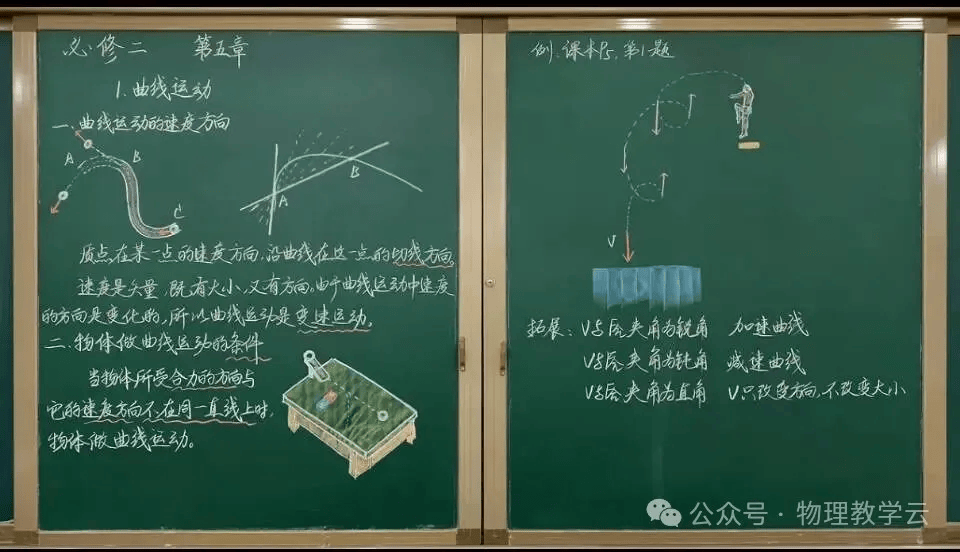 必修二 第五章
1.曲线运动
一.曲线运动的速度方向
A
B
C
A
B
质点在某一点的速度方向,沿曲线在这一点的切线方向。
速度是矢量,既有大小,又有方向,由于曲线运动中速度
的方向是变化的,所以曲线运动是变速运动。
二.物体做曲线运动的条件
当物体所受合力的方向与
它的速度方向不在同一直线上时,
物体做曲线运动。
例:课本P5,第1题
V
拓展:V与F合夹角为锐角 加速曲线
V与F合夹角为钝角 减速曲线
V与F合夹角为直角 V只改变方向,不改变大小
公众号·物理教学云